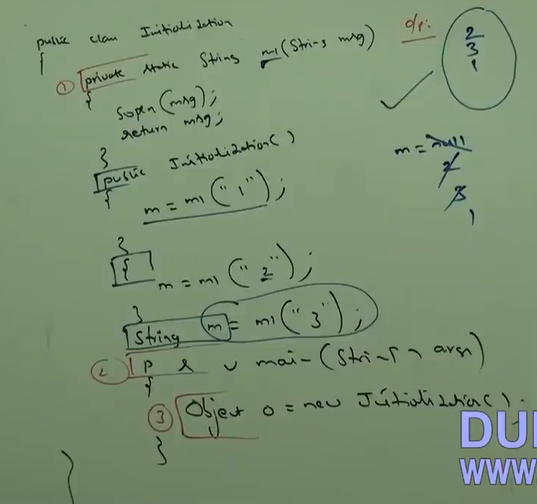 public class Initialization
{
① private static String m1(String msg)
{
sopln(msg);
return msg;
}
public Initialization()
{
m = m1("1");
}
{
m = m1("2");
}
String m = m1("3");
② p s v main(String[] args)
{
③ Object o = new Initialization();
}
}
o/p:
2
3
1
m = null
2
3
1
DU
WWW